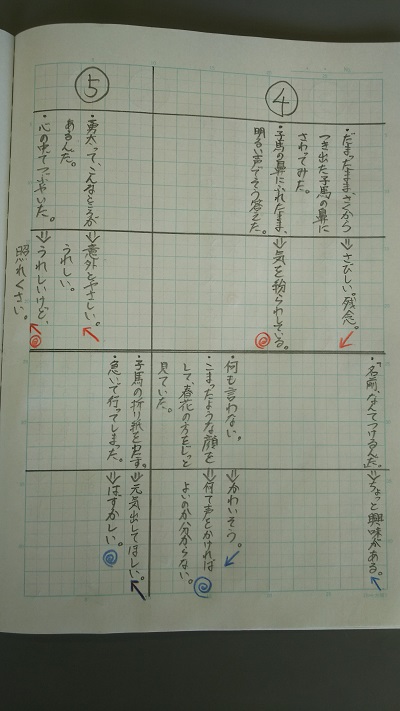 ④
・だまったまま、さくから
つき出た子馬の鼻に
さわってみた。
⇒さびしい。残念。
・子馬の鼻にふれたまま、
明るい声でそう答えた。
⇒気を紛らわしている。
・「名前、なんてつけるんだ。」
⇒ちょっと興味がある。
・何も言わない。
⇒かわいそう。
・こまったような顔を
して、春花の方をじっと
見ていた。
⇒何て声をかければ
よいのか分からない。
⑤
・勇太って、こんなところが
あるんだ。
⇒意外とやさしい。
うれしい。
・心の中でつぶやいた。
⇒うれしいけど、
照れくさい。
・子馬の折り紙を出す。
⇒元気出してほしい。
・急いで行ってしまった。
⇒はずかしい。